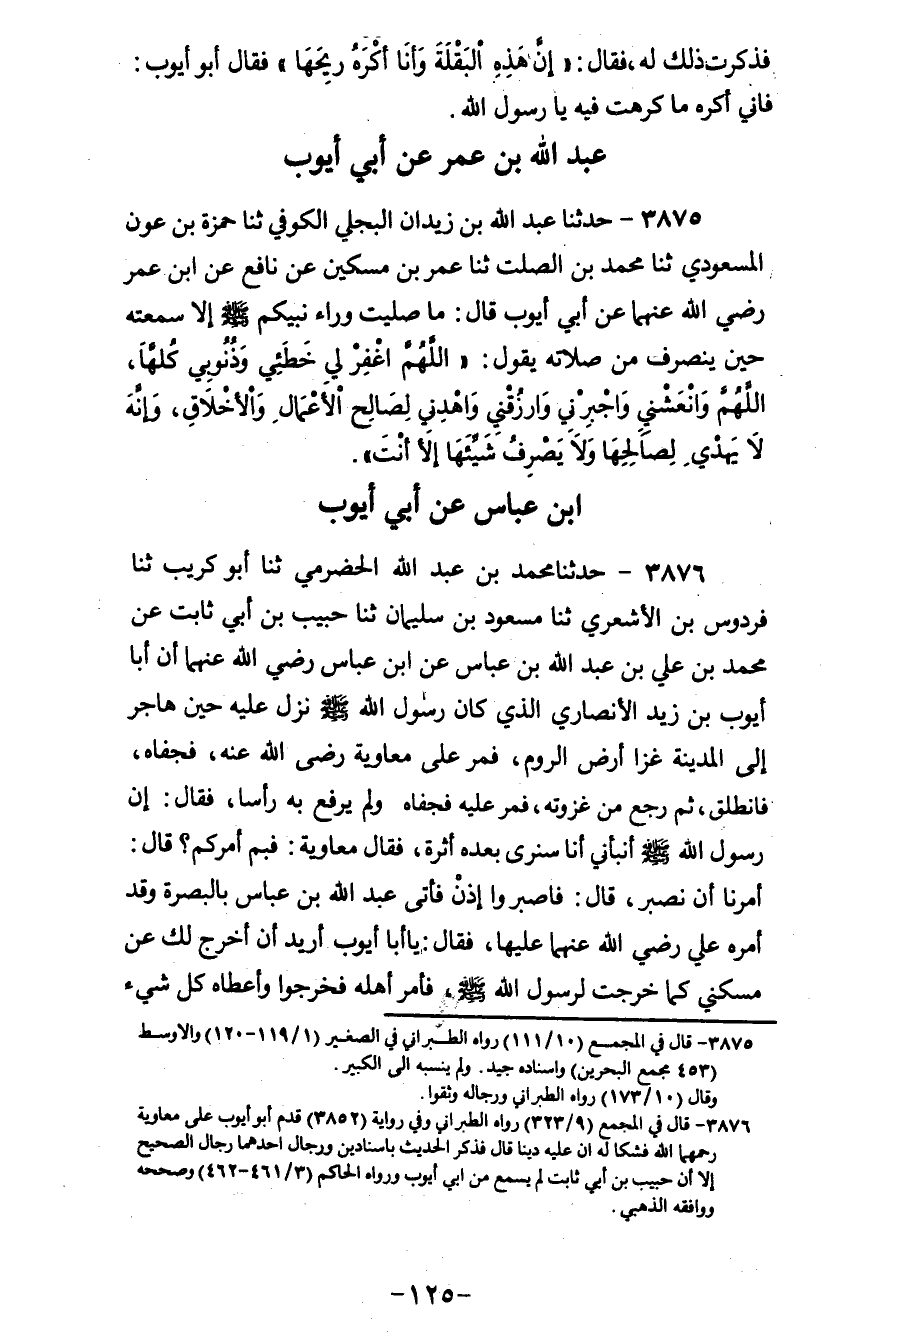 فذكرت ذلك له ، فقال : « إِنَّ هَذِهِ الْبَقْلَةَ وَأَنَا أَكْرَهُ رِيحَهَا » فقال أبو أيوب :
فاني أكره ما كرهت فيه يا رسول الله .
عبد الله بن عمر عن أبي أيوب
٣٨٧٥ – حدثنا عبد الله بن زيدان البجلي الكوفي ثنا حمزة بن عون
المسعودي ثنا محمد بن الصلت ثنا عمر بن مسكين عن نافع عن ابن عمر
رضي الله عنهما عن أبي أيوب قال : ما صليت وراء نبيكم ﷺ إلا سمعته
حين ينصرف من صلاته يقول : « اللَّهُمَّ اغْفِرْ لِي خَطَئِي وَذُنُوبِي كُلهَّاَ ،
اللَّهُمَّ وَانْعَشْنِي وَاجْبِرْنِي وَارزُقْنِي وَاهْدِنِي لِصَالِح الْأَعْمَالِ وَالْأخْلَاقِ ، وَإنَّهُ
لَا يَهْدِي لِصَالِحِهَا وَلاَ يَصْرِفُ سَيِّئَهَا إلاَّ أَنْتَ» .
ابن عباس عن أبي أيوب
٣٨٧٦ – حدثنا محمد بن عبد الله الحضرمي ثنا أبو كريب ثنا
فردوس بن الأشعري ثنا مسعود بن سليمان ثنا حبيب بن أبي ثابت عن
محمد بن علي بن عبد الله بن عباس عن ابن عباس رضي الله عنهما أن أبا
أيوب بن زيد الأنصاري الذي كان رسول الله ﷺ نزل عليه حين هاجر
إلى المدينة غزا أرض الروم ، فمر على معاوية رضى الله عنه ، فجفاه ،
فانطلق ، ثم رجع من غزوته ، فمر عليه فجفاه ولم يرفع به رأسا ، فقال : إن
رسول الله ﷺ أنبأني أنا سنرى بعده أثرة ، فقال معاوية : فبم أمركم ؟ قال :
أمرنا أن نصبر ، قال : فاصبروا إذنْ فأتى عبد الله بن عباس بالبصرة وقد
أمره علي رضي الله عنهما عليها ، فقال : ياأبا أيوب أريد أن أخرج لك عن
مسكني كما خرجت لرسول الله ﷺ ، فأمر أهله فخرجوا وأعطاه كل شيء
٣٨٧٥- قال في المجمع (١٠/ ١١١) رواه الطبراني في الصغير (١/ ١١٩-١٢٠) والاوسط
(٤٥٣ مجمع البحرين) واسناده جيد . ولم ينسبه الى الكبير .
وقال (١٠/ ١٧٣) رواه الطبراني ورجاله وثقوا .
٣٨٧٦- قال في المجمع (٩/ ٣٢٣) رواه الطبراني وفي رواية (٣٨٥٢) قدم أبو أيوب على معاوية
رحمهما الله فشكا له ان عليه دينا قال فذكر الحديث باسنادين ورجال احدهما رجال الصحيح
إلا أن حبيب بن أبي ثابت لم يسمع من ابي أيوب ورواه الحاكم (٣/ ٤٦١-٤٦٢) وصححه
ووافقه الذهبي .
-١٢٥-